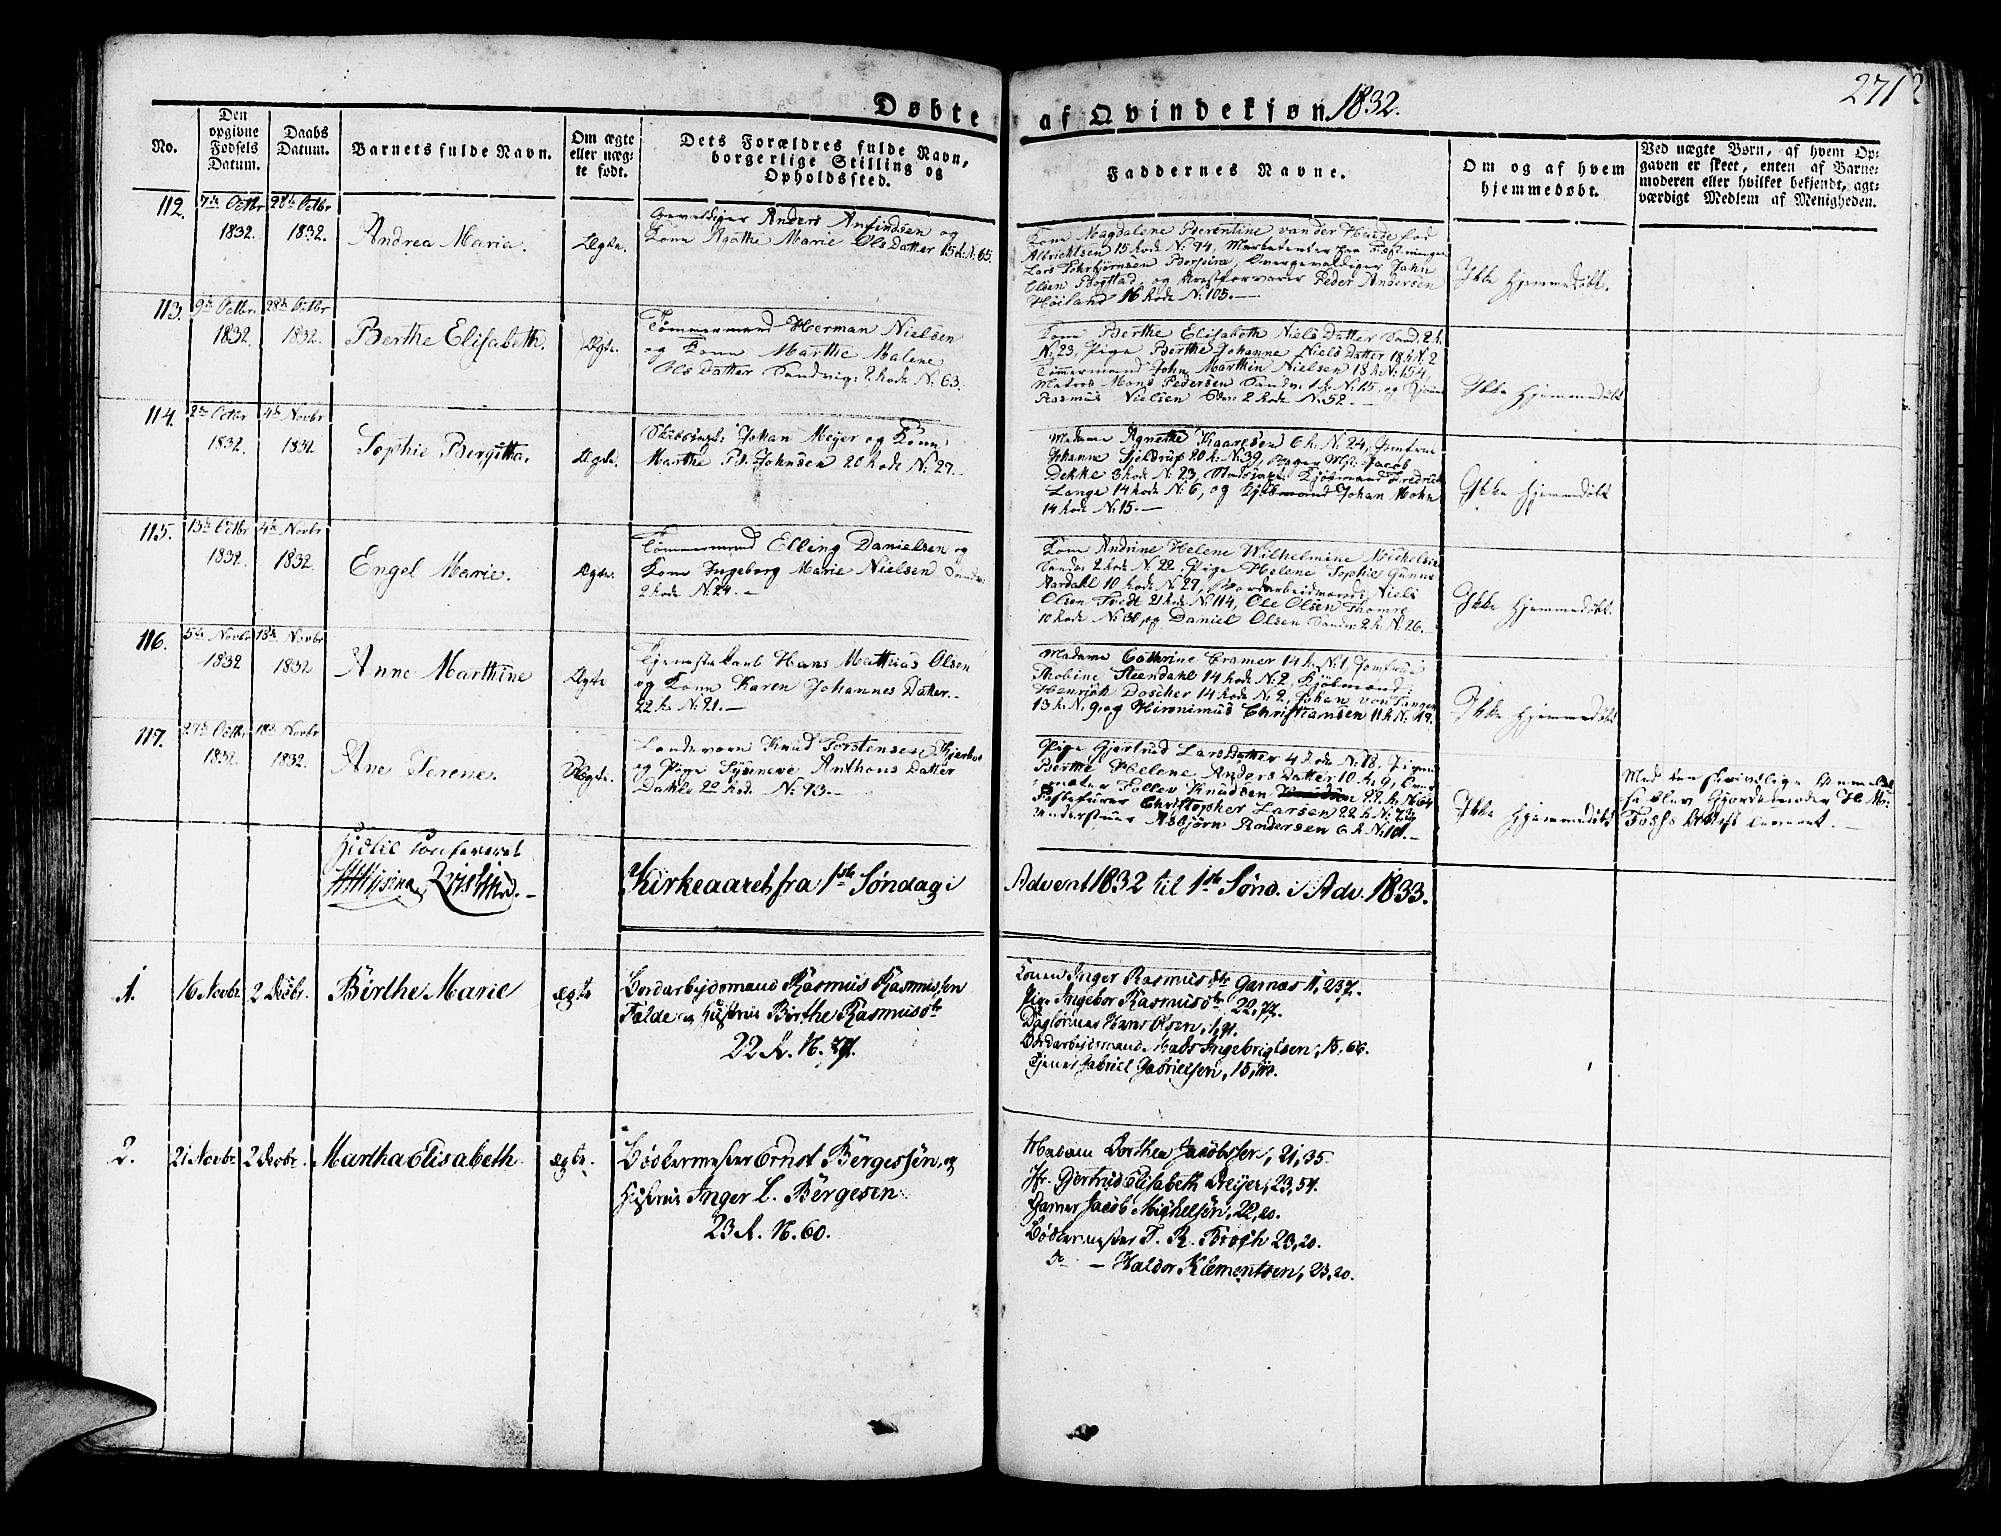 2712
Døbte af Qvindekjøn 1832.
No.
Den opgivne Fødsels Datum.
Daabs Datum.
Barnets fulde Navn.
Om ægte eller uægte født.
Dets Forældres fulde Navn, borgerlige Stilling og Opholdssted.
Faddernes Navne.
Om og af hvem hjemmedøbt.
Ved uægte Børn, af hvem Opgaven er skeet, enten af Barnemoderen eller hvilket bekjendt, agtværdigt Medlem af Menigheden.
112. 7de Octbr 1832. 28de Octbr 1832.
Andrea Marie.
Ægte.
Gevaldiger Anders Anfindsen og
Kone Agathe Marie Ols Datter 15 k. N. 65.
Kone Magdalene Berentine van der Hude fød
Albrichtsen 15 Rode N. 94, Marketenter paa Fæstningen
Lars Torbjørnsen Overgevaldiger John
Olsen Bogstad og Arrestforvarer Peder Andersen
Høiland 16 Rode N. 105.
Ikke hjemmedøbt.
113. 9de Octbr. 1832. 28de Octbr 1832.
Berthe Elisabeth.
Ægte.
Tømmermand Herman Nielsen
og Kone Marthe Malene
Ols Datter Sandvig: 2 Rode N. 63.
Kone Berthe Elisabeth Niels Datter Sand. 2 k.
N. 23, Pige Berthe Johanne Niels Datter 18 k N. 2
Tømmermand John Marthin Nielsen 18 k N. 154,
Matros Mons Pedersen Sandv: 1 k. N. 15, og
Rasmus Nielsen 2 Rode N. 52.
Ikke hjemmedøbt
114. 2de Octbr 1832. 4de Novbr 1832.
Sophie Bergitta.
Ægte.
Johan Meyer og Kone
Marthe B. Johnsen 20 Rode N. 27.
Madame Agnethe Kaaresen 6 k. N. 24, Jomfrue
Johanne Tjeldrup 20 k. N. 39, Bager Mst: Jacob
Dekke 3 Rode N. 23, Kjøbmand Fredrik
Lange 14 Rode N. 6, og Kjøbmand Johan Mohn
14 Rode N. 15.
Ikke hjemmedøbt
115. 13de Octbr 1832. 4de Novbr 1832.
Engel Marie.
Ægte.
Tømmermand Elling Danielsen og
Kone Ingeborg Marie Nielsen Sandv:
2 Rode N. 24.
Kone Andrine Helene Wilhelmine Michelsen
Sandv: 2 Rode N. 22, Pige Helene Sophie Gunne
Aardahl 10 Rode N. 27, Bordarbeidsmand Niels
Olsen Tvedt 21 Rode N. 114, Ole Olsen Thomre
10 Rode N. 30, og Daniel Olsen Sandv: 2 k. N. 26.
Ikke hjemmedøbt.
116. 5de Novbr 1832 18de Novbr 1832
Anne Marthine
Ægte
Tjenestekarl Hans Mathias Olsen
og Kone Karen Johannes Datter.
22 k. N. 21.
Madame Cathrine Cramer 14 k. N. 1, Jomfrue
Thobine Steendahl 14 Rode N. 2, Kjøbmand:
Henrich Doscher 14 Rode N. 2, Johan von Tangen
13 k. N. 9, og Hironimus Christiansen 11 k N. 49.
Ikke hjemmedøbt
117. 27de Octbr 1832. 18de Novbr 1832.
Ane Serene.
Uægte.
Landeværn Knud Torstensen
og Pige Synneve Anthons Datter
Dahle 22 Rode N. 93.
Pige Gjertrud Lars Datter 4 Rode N. 18, Pigen
Berthe Helene Anders Datter 10 k, 9,
Tollev Knudsen 22 k. N. 64
Christopher Larsen 22 k. N. 73, og
Asbjørn Andersen 6 k. N. 101.
Ikke hjemmedøbt
Med den skrivtlige Anmeldelse
blev Gjordemoder
Attest leveret.
Hidtil confereret
Kirkeaaret fra 1ste Søndag i Advent 1832 til 1ste Sønd. i Adv. 1833.
1. 16 Novbr. 2 Decbr.
Birthe Marie
ægte
Bordarbeidsmand Rasmus Rasmussen
Falde og Hustrue Birthe Rasmusdtr
22 R. N. 77.
Konen Inger Rasmusdtr Garnæs 11, 237.
Pige Ingebor Rasmusdtr 22, 77.
Dagløner Hans Olsen, 1, 91.
Bordarbeidsmand Mads Ingebrigtsen, 15, 66.
Tjener Gabriel Gabrielsen, 15, 110.
2. 21 Novbr. 2 Decbr.
Martha Elisabeth
ægte.
Bødkermester Ernst Børgessen, og
Hustrue Inger L. Børgesen
23 R. N. 60.
Madam Dorthea Jacobssen, 21, 35.
Fr. Gjertrud Elisabeth Dreyer, 23, 54.
Garver Jacob Michelsen, 22, 20.
Bødkermester T. R. Brosch 23, 20.
Do — Haldor Klementsen, 23, 20.